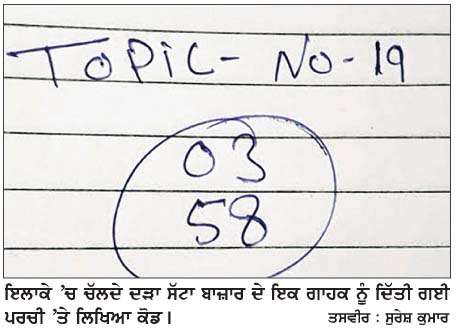 TOPiC - NO - 19
03
58
ਇਲਾਕੇ 'ਚ ਚੱਲਦੇ ਦੜਾ ਸੱਟਾ ਬਾਜ਼ਾਰ ਦੇ ਇਕ ਗਾਹਕ ਨੂੰ ਦਿੱਤੀ ਗਈ
ਪਰਚੀ 'ਤੇ ਲਿਖਿਆ ਕੋਡ। ਤਸਵੀਰ : ਸੁਰੇਸ਼ ਕੁਮਾਰ